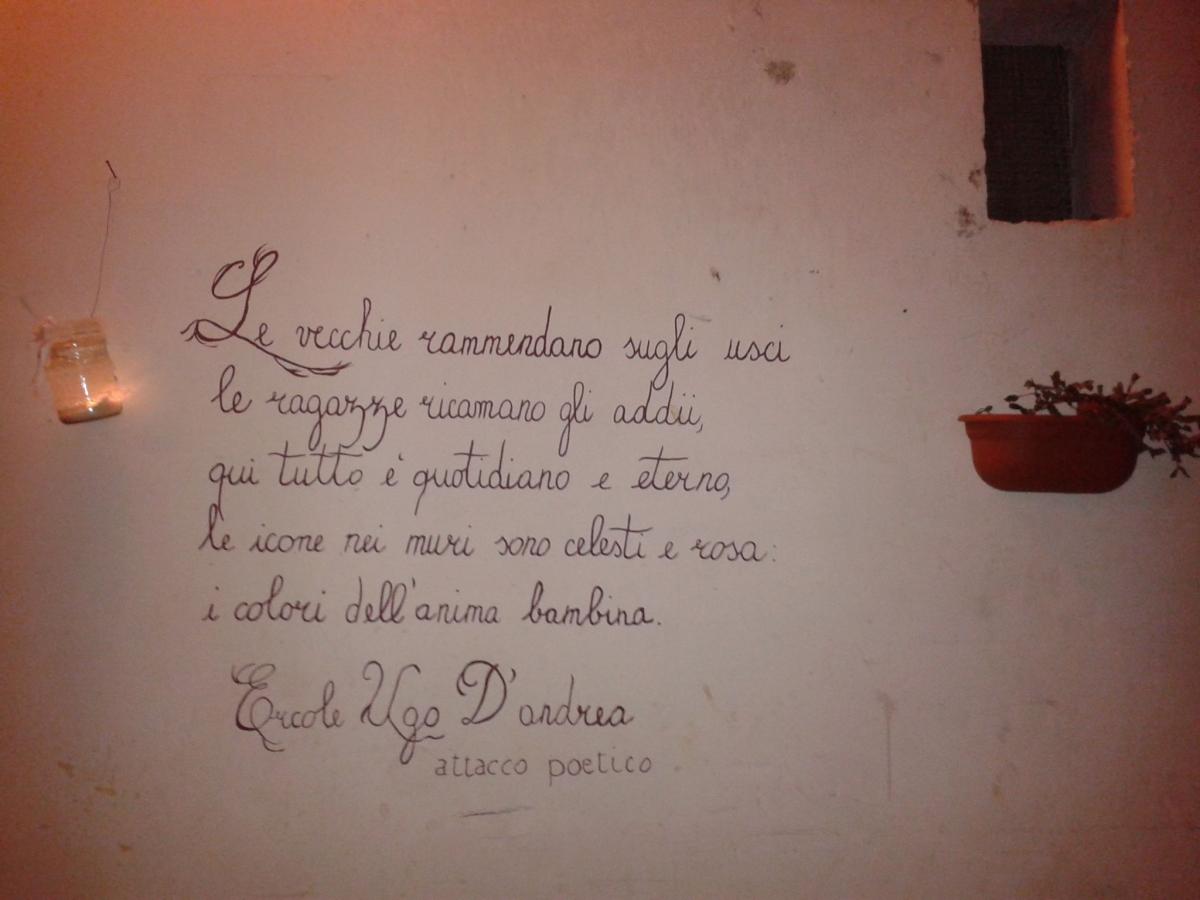 Le vecchie rammendano sugli usci
le ragazze ricamano gli addii,
qui tutto è quotidiano e eterno,
le icone nei muri sono celesti e rosa:
i colori dell'anima bambina.
Ercole Ugo D'andrea
attacco poetico